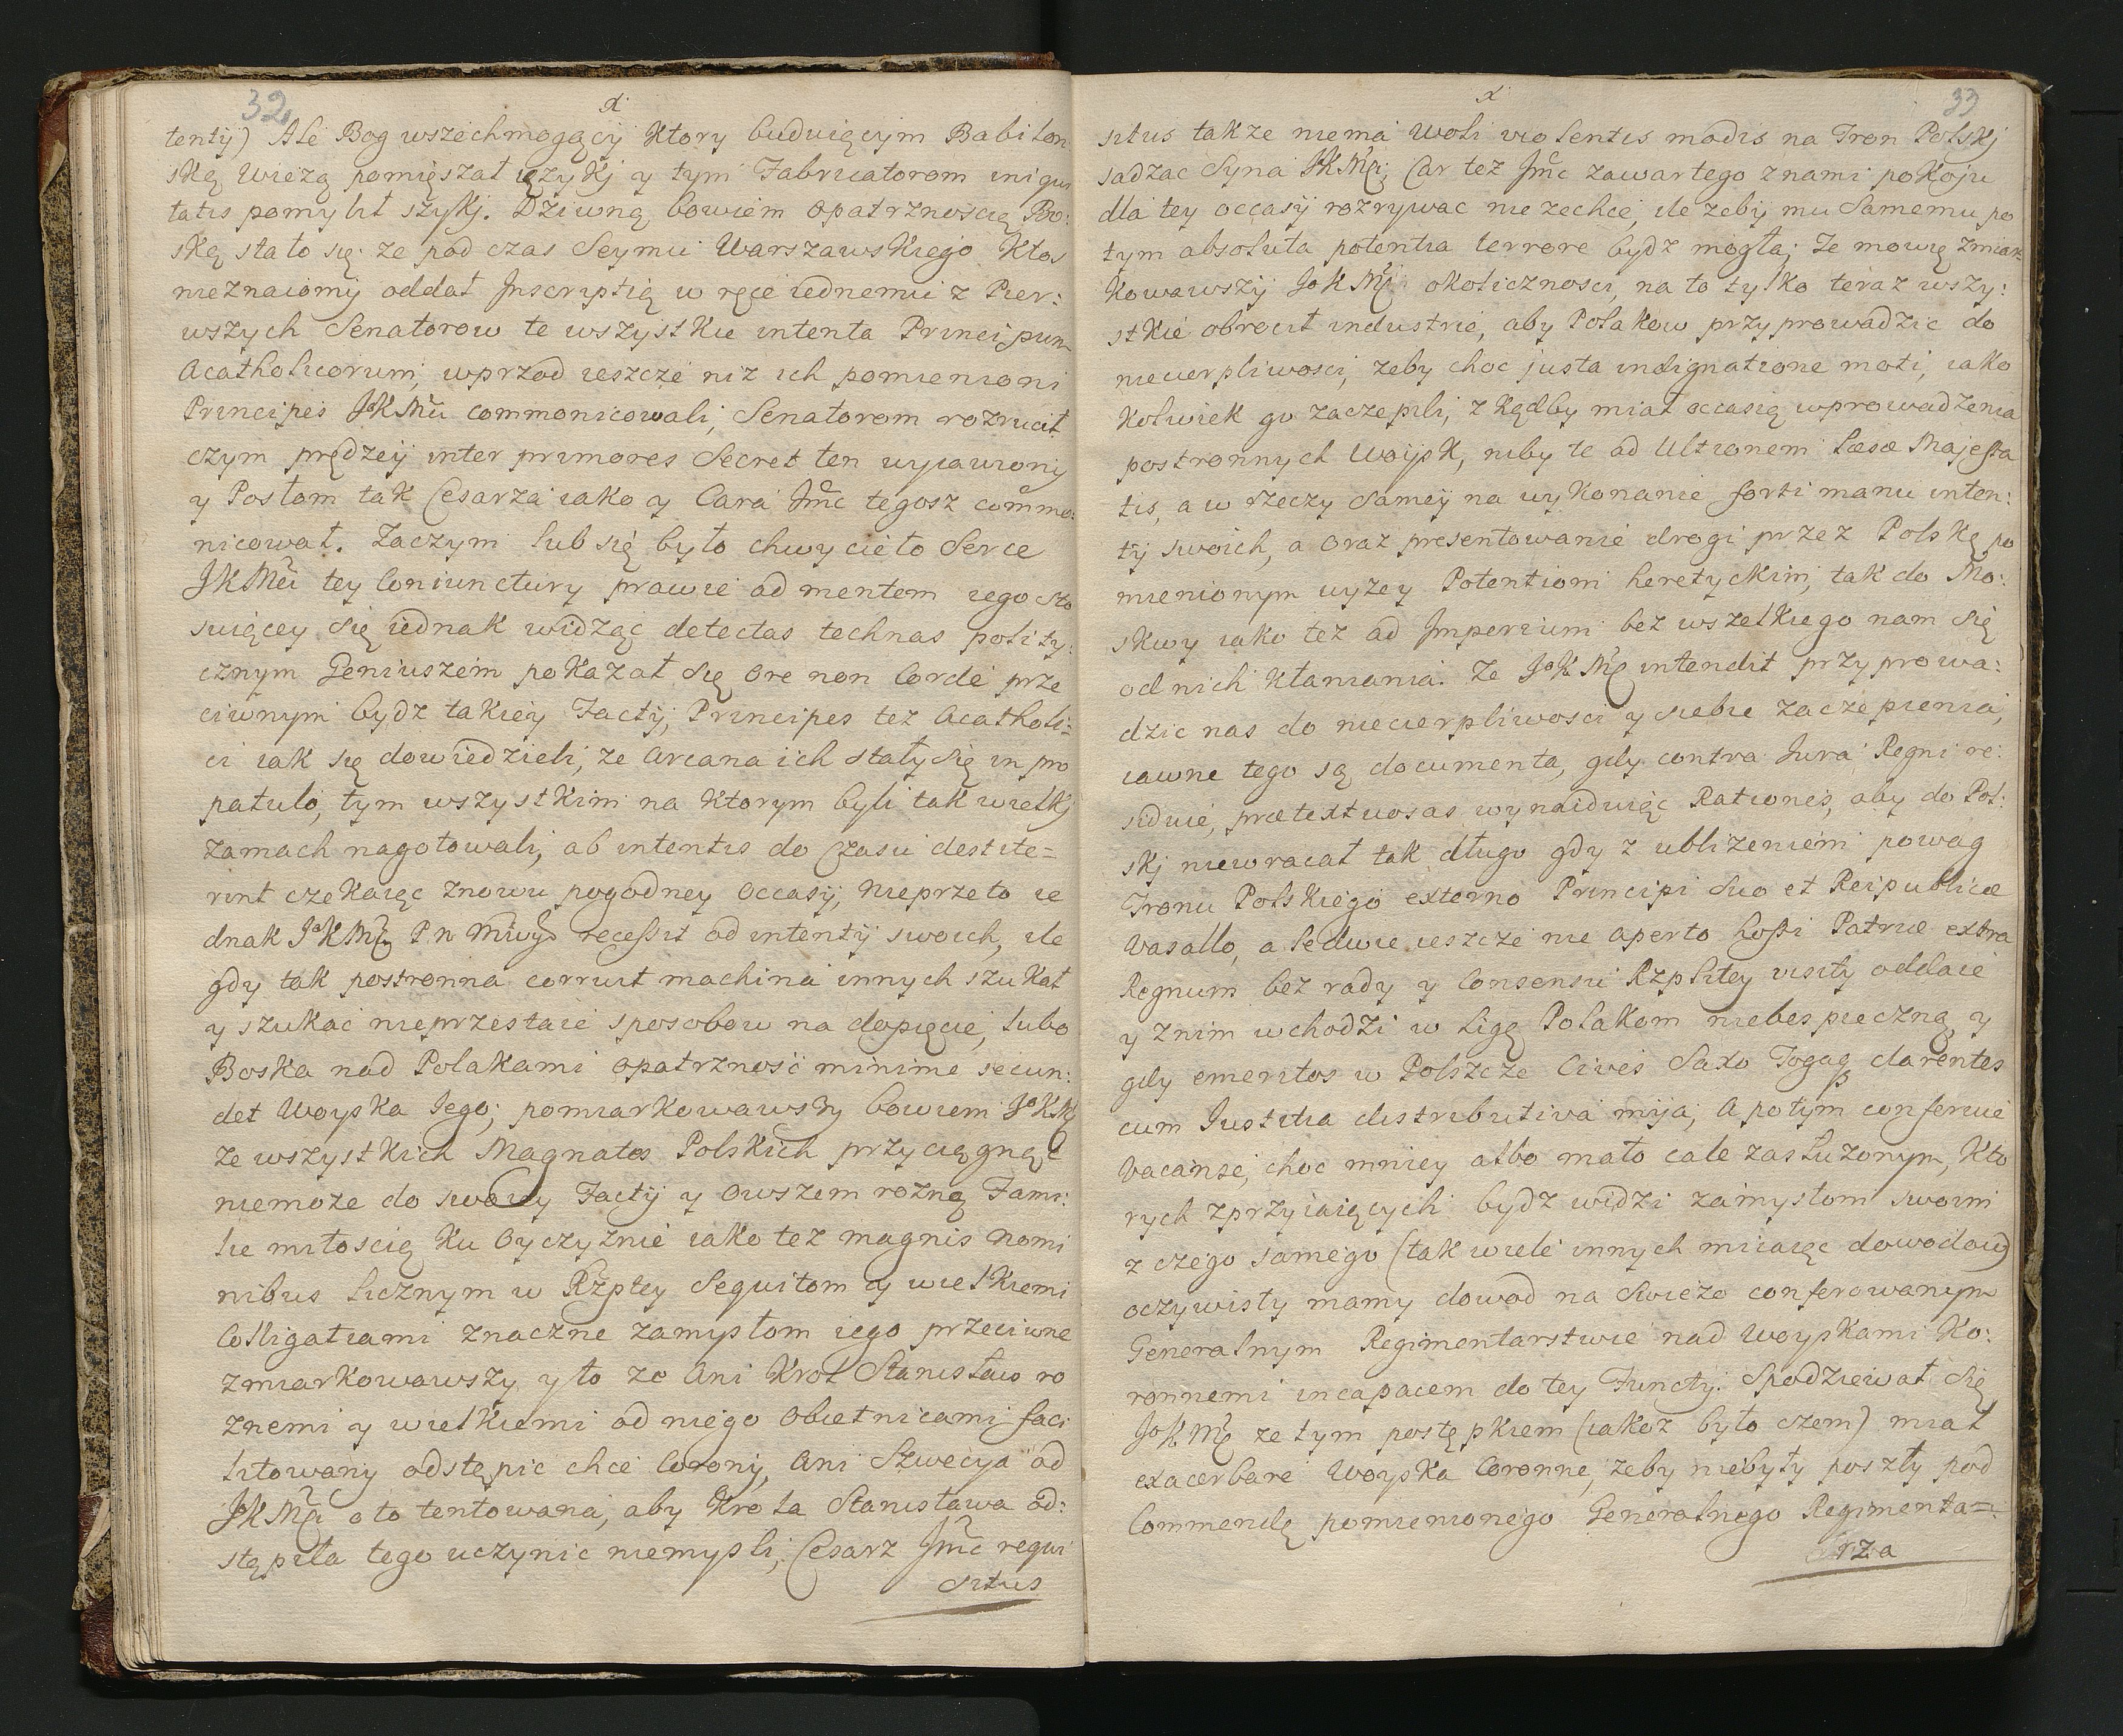 32
tentij) Ale Bog wszechmogący Ktory buduiącym Babilon
ską wiezą pomięszał ięzykj y tym Fabricatorom iniqui
tatis pomylił szykj. Dziwną bowiem opatrznoscią Bo:
ską stało się: ze pod czas Seymu Warszawskiego Ktos
nieznaiomy oddał Inscriptią w ręce iednemu z Pier:
wszych Senatorow te wszystkie intenta Principum
Acatholicorum, wprzod ieszcze niz ich pomienioni
Principes JKMci commonicowali, Senatorom rozrucił
czym prędzey inter primores Secret ten wyiawiony
y Posłom tak Cesarza iako y Cara Jmc tegosz commo:
nicował. Zaczym lub się było chwyciło Serce
JKMci tey Coniunctury prawie ad mentem iego sto
suiącey się iednak widząc detectas technas polity:
cznym Geniuszem pokazał się ore non Corde prze
ciwnym bydz takiey Factij, Principes tez Acatholi=
ci iak się dowiedzieli, ze arcana ich stały się in pro
patulo, tym wszystkim na ktorym byli tak wielkj
zamach nagotowali, ab intentis do Czasu destite=
rint czekaiąc znowu pogodney occasij, nieprzeto ie
dnak JoKMć P n Miwy recessit od intentij swoich, ile
gdy tak postronna corruit machina innych szukał
y szukać nieprzestaie sposobow na dopięcie, lubo
Boska nad Polakami opatrznosć minime secun:
det Woyska Iego; pomiarkowawszy bowiem JoKMć
ze wszystkich Magnatos Polskich przyciągnąć
niemoze do swoiey Factij y owszem rozną Fami:
lie miłoscią ku Oyczyznie iako tez magnis nomi
nibus licznym w Rzptey Sequitom y wielkiemi
Colligatiami znaczne zamysłom iego przeciwne
zmiarkowawszy y to ze ani Krol Stanisław ro
znemi y wielkiemi od niego obietnicami faci
litowany odstąpic chce Corony, ani Szwecya od
JKMci o to tentowana, aby Krola Stanisława od:
stąpiła tego uczynic niemysli, Cesarz Jmc requi
situs
33
situs takze niema woli violentis modis na Tron Polskj
sadzac Syna JKMci; Car tez Jmc zawartego znami pokoju
dla tey occasij rozrywac nie zechce, ile zeby mu Samemu po
tym absoluta potentia terrore bydz mogła; Te mowię zmiar:
kowawszy JoKMć okolicznosci, na to tylko teraz wszy:
stkie obrocił industrie, aby Polakow przyprowadzic do
niecierpliwosci, zeby choc justa indignatione moti, iako
kolwiek go zaczepili, z kądby miał occasią wprowadzenia
postronnych Woysk, niby te ad Ultionem læsæ Majesta
tis, a w rzeczy samey na wykonanie forti manu inten:
tij swoich, a oraz presentowanie drogi przez Polskę po
mienionym wyzey Potentiom heretyckim, tak do Mo:
skwy iako tez ad Imperium bez wszelkiego nam się
od nich kłaniania. Ze JoKMć intendit przyprowa:
dzic nas do niecierpliwosci y siebie zaczepienia,
iawne tego są documenta, gdy contra Iura Regni re:
siduie, prætextuosas wynaiduiąc Rationes, aby do Pol:
skj niewracał tak długo gdy z ublizeniem powag
Tronu Polskiego externo Principi suo et Reipublicæ
Vasallo, a ledwie ieszcze nie aperto hosti Patriæ extra
Regnum bez rady y Consensu Rzplitey visity oddaie
y znim wchodzi w ligę Polakom niebespieczną, y
gdy emeritos w Polszcze Cives Saxo Togaq clarentes
cum Iustitia distributiva mija, a potym conferuie
Vacanse, choc mniey albo mało cale zasłuzonym, Kto
rych zprzyiaiących bydz widzi zamysłom swoim
z czego samego (tak wiele innych miiaiąc dowodow)
oczywisty mamy dowod na swiezo conferowanym
Generalnym Regimentarstwie nad woyskami Ko:
ronnemi incapacem do tey Functij. Spodziewał się
JoKMć ze tym postępkiem (iakoz było czem) miał
exacerbare Woyska Coronne, zeby niebyły poszły pod
Commendę pomienionego Generalnego Regimenta=
rza